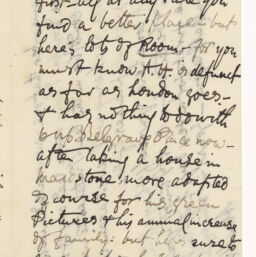 first - at any rate you
find a better Place but
here's lots of Room - for you
must know A.H. is defunct
as far as London goes -
& has nothing to do with
Belgrave Place now -
after taking a house in
stone more adapted
of course for his green
Pictures & his annual increase
of family but he's sure to